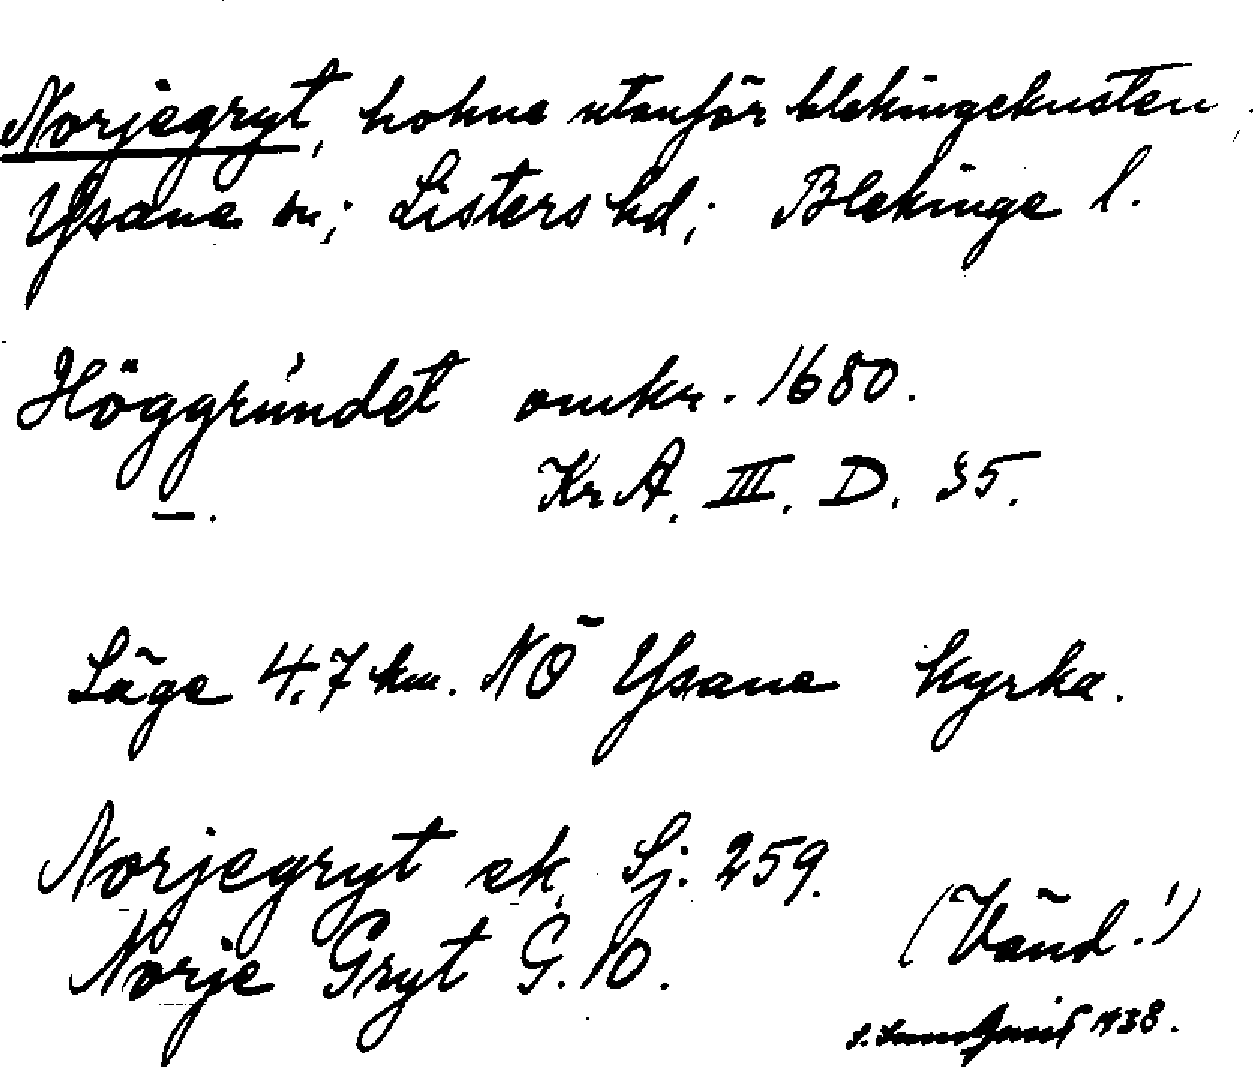 Norjegryt, holme utanför blekingekusten.
Ysane sn; Listers hd; Blekinge l.
Höggrúndet omkr. 1680.
Kr A. III. D. 35.
Läge 4,7 km. NÖ Ysane kyrka.
Norjegryt ek. Sj. 259.
Norje Gryt G. 10.
(Vänd!)
1938.